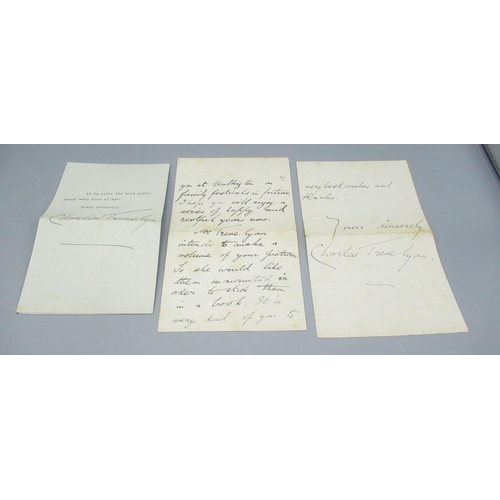 It is quite the best photo-
graph ever seen of her.
Yours sincerely,
Charles Trevelyan
you at Wallington on
family festivals in future
I hope you will enjoy a
series of happy and
restful years now.
Trevelyan
intends to make a
volume of your pictures
So she would like
them unmounted in
order to stick them
in a book. It is
very kind of you to
very best wishes and
thanks.
Yours sincerely
Charles Trevelyan.